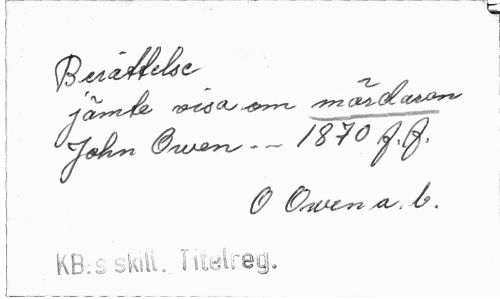 Berättelse
jämte visa om mördaren
John Owen -- 1870 f.f.
O Owen a. b.
KB:s skill. Titelreg.